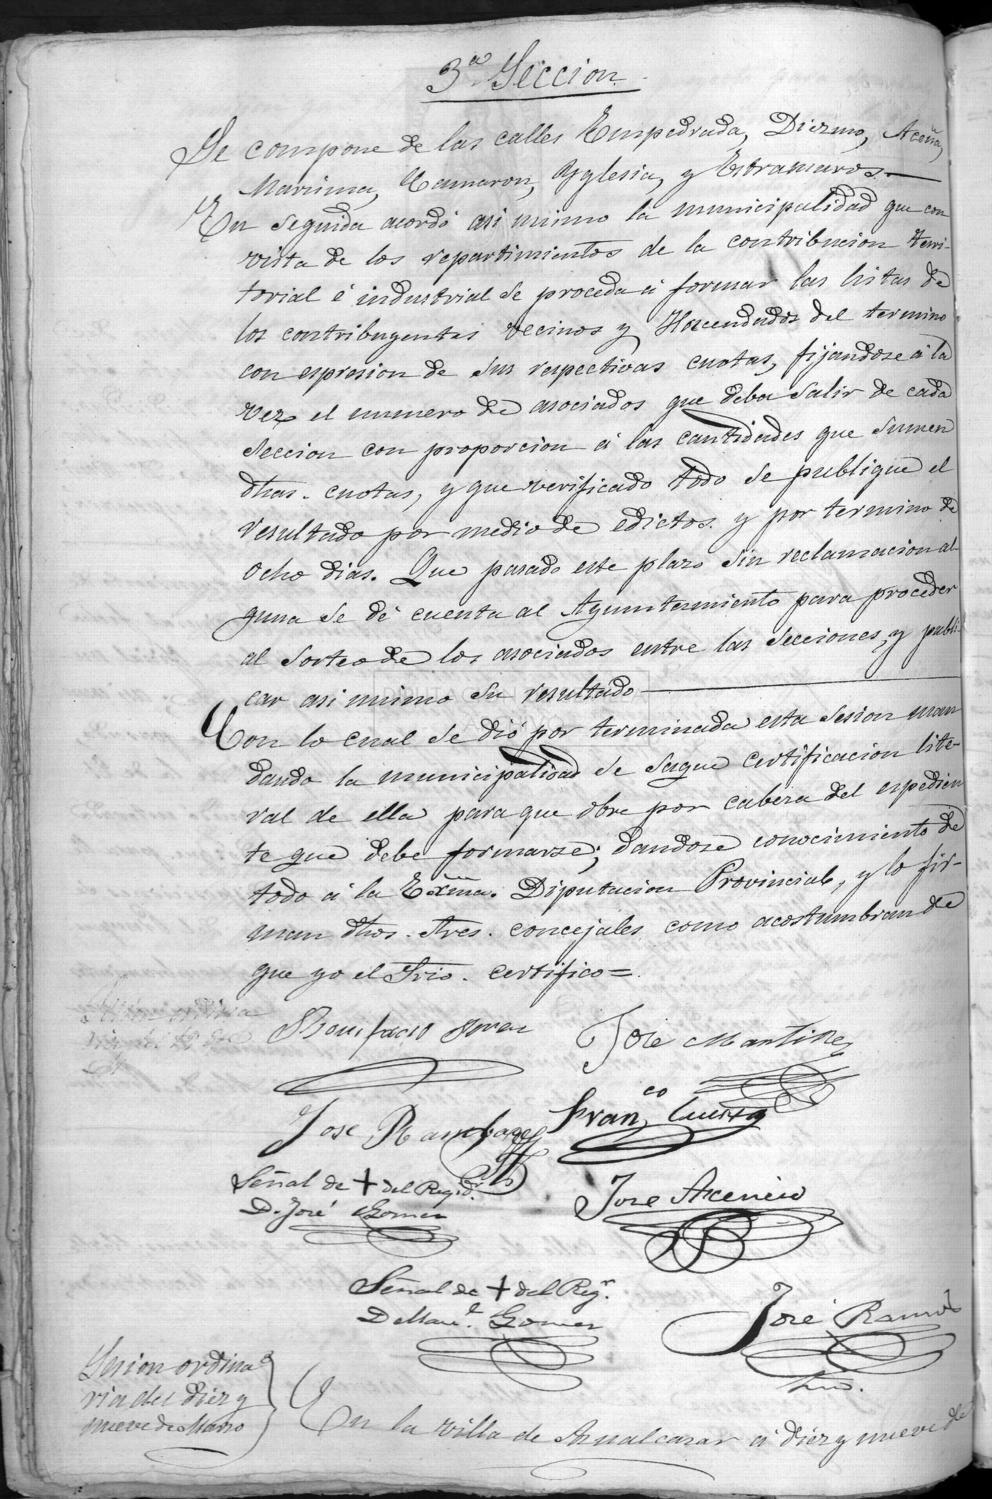 3ª Seccion.
Se compone de las calles Empedrada, Diezmo, Aceña,
Marisma, Camaron, Yglesia, y Extramuros.—
En seguida acordó asi mismo la municipalidad que con
vista de los repartimientos de la contribucion terri-
torial é industrial se proceda á formar las listas de
los contribuyentes vecinos y Hacendados del termino
con espresion de sus respectivas cuotas, fijandose á la
vez el numero de asociados que deba salir de cada
Seccion con proporcion á las cantidades que sumen
dhas. cuotas, y que verificado todo se publique el
resultado por medio de edictos y por termino de
ocho dias. Que pasado este plazo sin reclamacion al
guna se dé cuenta al Ayuntamiento para proceder
al sorteo de los asociados entre las Secciones, y publi
car asi mismo su resultado—
Con lo cual se dió por terminada esta sesion man
dando la municipalidad se saque certificacion lite-
ral de ella para que obre por cabeza del espedien
te que debe formarse; dandose conocimiento de
todo á la Exma. Diputacion Provincial, y lo fir-
man dhos. Sres. concejales como acostumbran de
que yo el Srio. certifico=.
Bonifacio
José Martinez
José
Fran.co Cuesta
Señal de + del Regidr.
D. José Gomez
José Ascencio
Señal de + del Regr.
D. Manl. Gomez
José Ramos
Srio.
Sesion ordina
ria del diez y
nueve de Marzo
En la villa de Aznalcazar á diez y nueve de